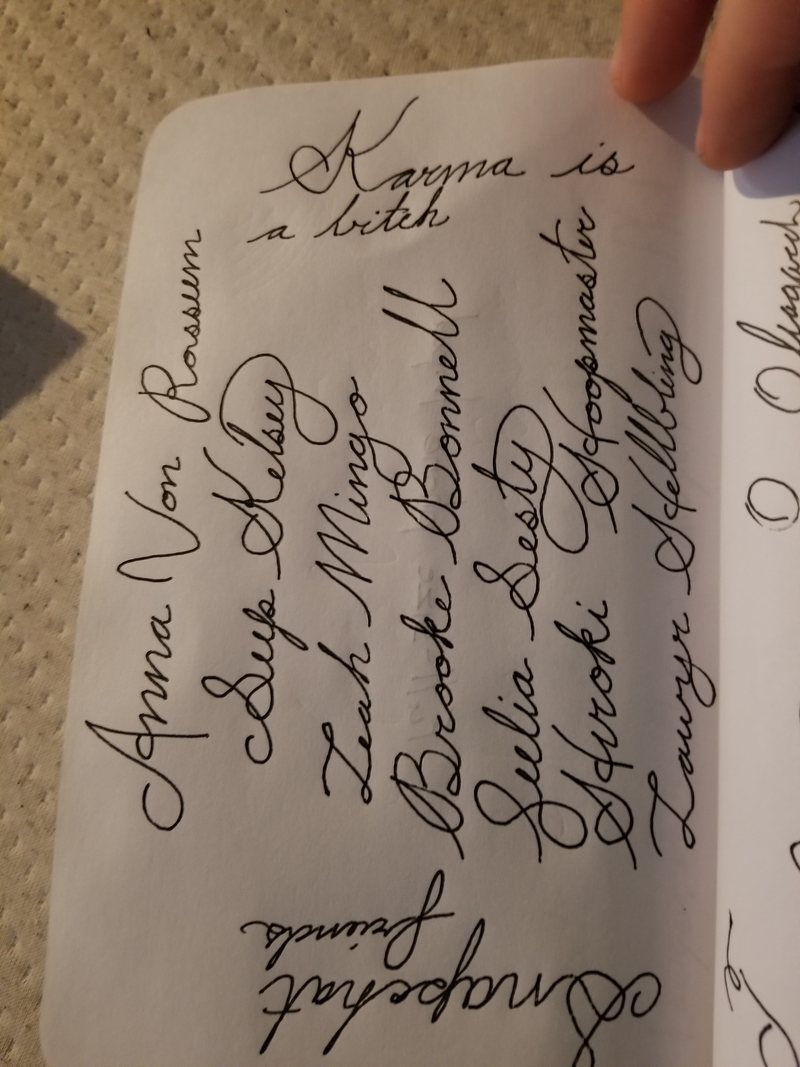 Karma is
a bitch
Anna Von Rossum
Sup Kelsey
Leah Mingo
Brooke Bonnell
Julia Sesty
Hiroki Hoopmaster
Lauryr Hellbling
Snapchat
friends